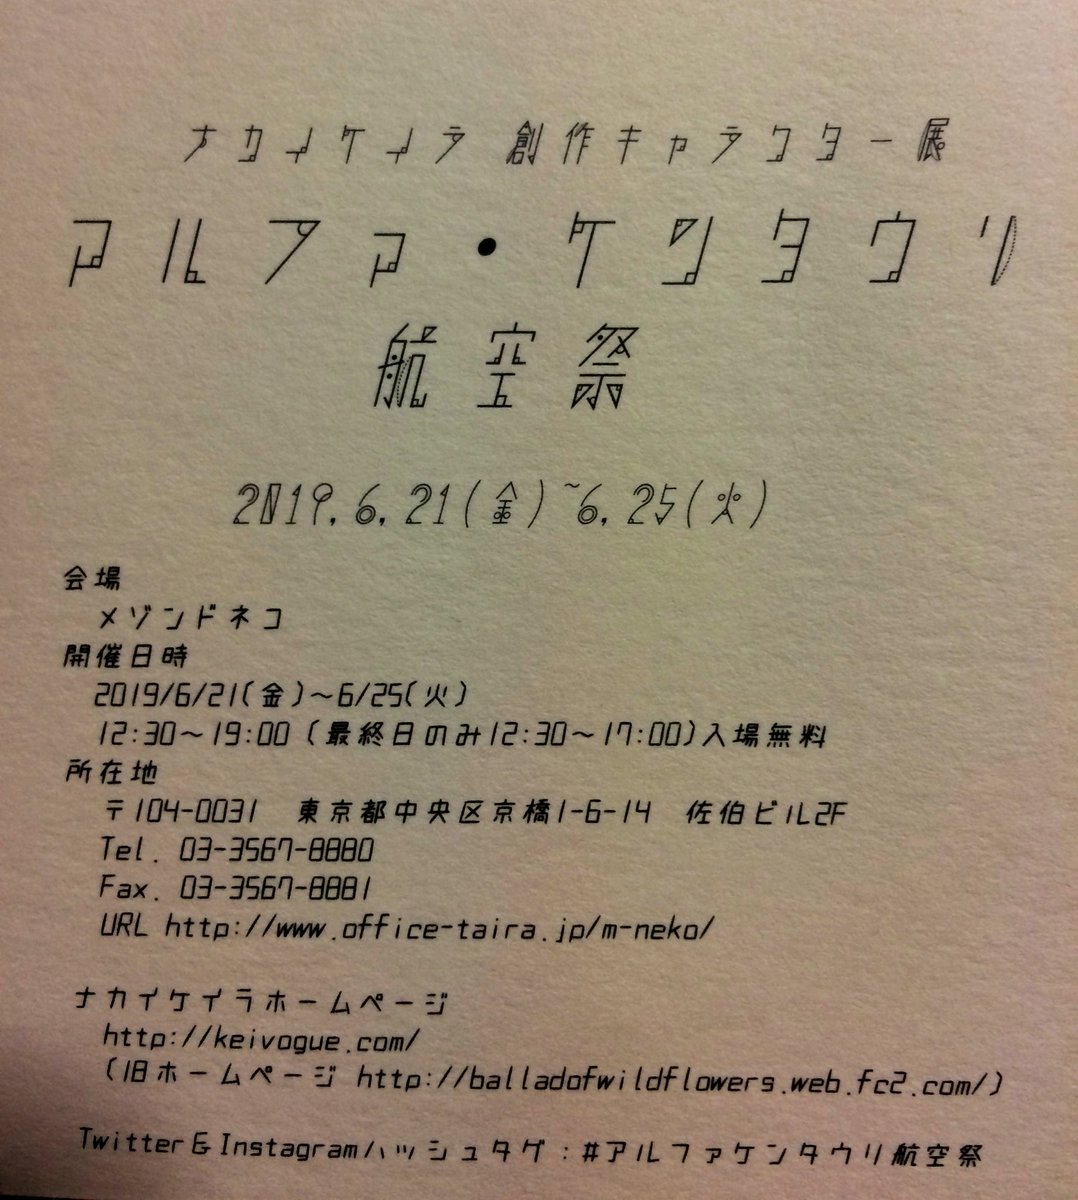 ナカイケイラ 創作キャラクター展
アルファ・ケンタウリ
航空祭
2019.6.21(金)~6.25(火)
会場
メゾンドネコ
開催日時
2019/6/21(金)～6/25(火)
12:30～19:00 (最終日のみ12:30～17:00)入場無料
所在地
〒104-0031 東京都中央区京橋1-6-14 佐伯ビル2F
Tel. 03-3567-8880
Fax. 03-3567-8881
URL http://www.office-taira.jp/m-neko/
ナカイケイラホームページ
http://keivogue.com/
(旧ホームページ http://balladofwildflowers.web.fc2.com/)
Twitter&Instagramハッシュタグ:#アルファケンタウリ航空祭